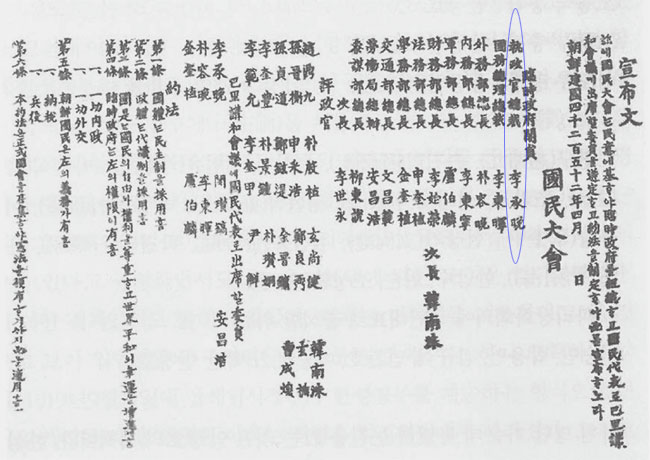 宣布文
玆에國民大會는民意에基하야臨時政府를組織하고國民代表로巴里講
和會議에出席할委員을選定하고約法을制定하야如左히宣布하노라
朝鮮建國四千二百五十二年四月 日
國民大會
臨時政府閣員
執政官總裁 李承晩
國務總理總裁 李東暉
外務部總長 朴容萬
內務部總長 李東寧
軍務部總長 盧伯麟
財務部總長 李始榮 次長 韓南洙
法務部總長 申奎植
學務部總長 金奎植
交通部總長 文昌範
勞働局總辦 安昌浩
參謀部總長 柳東說
次長 李世永
評政官
趙鼎九 朴殷植 玄尙健 韓南洙
孫晋衡 申采浩 鄭良弼 玄楯
孫貞道 鄭鉉湜 金晋鏞 曺成煥
李奎豊 朴景鍾 朴瓚翊
李範允 李奎甲 尹解
巴里講和會議에國民代表로出席할委員
李承晩 閔瓚鎬 安昌浩
朴容萬 李東暉
金奎植 盧伯麟
約法
第一條 國體는民主制를採用함
第二條 政體는代議制를採用함
第三條 國是는國民의自由와權利를尊重하고世界平和의幸運을增進하게함
第四條 臨時政府는左의權限을有함
一切內政
一切外交
第五條 朝鮮國民은左의義務가有함
一、納稅
一、兵役
第六條 本約法은正式國會를召集하야憲法을頒布하기까지此를適用함